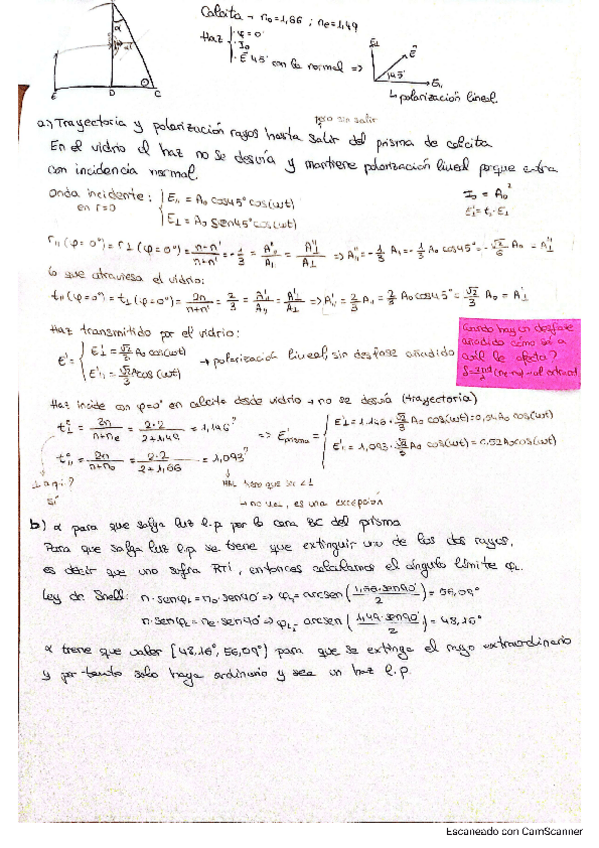 Calcita → n₀=1,66 ; ne=1,49
Haz { φ=0°
I₀
E 45° con la normal ⇒
E⊥ E E॥
45°
↳ polarización lineal.
α
E D C
pero sin salir
a) Trayectoria y polarización rayos hasta salir del prisma de calcita
En el vidrio el haz no se desvía y mantiene polarización lineal porque entra
con incidencia normal.
Onda incidente: { E॥ = A₀ cos45° cos(ωt)
en r=0
E⊥ = A₀ sen45° cos(ωt)
I₀ = A₀²
E'⊥ = t⊥·E⊥
r॥(φ=0°) = r⊥(φ=0°) = n-n'/n+n' = -1/3 = A''॥/A॥ = A''⊥/A⊥ ⇒ A''॥ = -1/3 A॥ = -1/3 A₀ cos45° = -√2/6 A₀ = A''⊥
lo que atraviesa el vidrio:
t॥(φ=0°) = t⊥(φ=0°) = 2n/n+n' = 2/3 = A'॥/A॥ = A'⊥/A⊥ ⇒ A'॥ = 2/3 A॥ = 2/3 A₀ cos45° = √2/3 A₀ = A'⊥
Haz transmitido por el vidrio:
E' = { E'⊥ = √2/3 A₀ cos(ωt)
E'॥ = √2/3 A₀ cos(ωt)
→ polarización lineal, sin desfase añadido
Cuando hay un desfase
añadido cómo sé a
cuál le afecta?
Haz incide con φ=0° en calcita desde vidrio → no se desvía (trayectoria)
t⊥ᵉ = 2n/n+ne = 2·2/2+1,49 = 1,146?
t॥ᵒ = 2n/n+n₀ = 2·2/2+1,66 = 1,093?
⇒ E'prisma = { E'⊥ = 1,146·√2/3 A₀ cos(ωt) = 0,54 A₀ cos(ωt)
E'॥ = 1,093·√2/3 A₀ cos(ωt) = 0,52 A₀ cos(ωt)
⊥ aquí?
sí
que ser <1
→ no, es una excepción
b) α para que salga luz l.p por la cara BC del prisma
Para que salga luz l.p se tiene que extinguir uno de los dos rayos,
es decir que uno sufra RTI, entonces calculamos el ángulo límite φL.
Ley de Snell: n·senφL = n₀·sen90° ⇒ φL = arcsen(1,66·sen90°/2) = 56,09°
n·senφL = ne·sen90° ⇒ φL = arcsen(1,49·sen90°/2) = 48,16°
α tiene que valer [48,16°, 56,09°) para que se extinga el rayo extraordinario
y por tanto solo haya ordinario y sea un haz l.p.
Escaneado con CamScanner